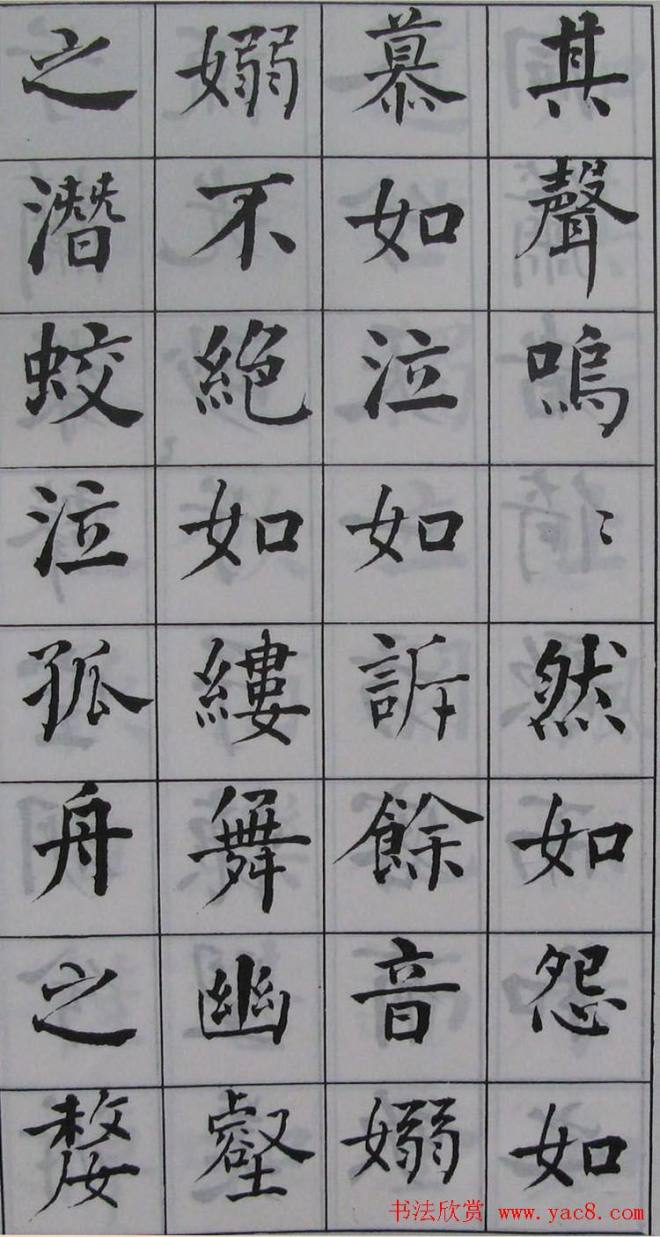 其聲嗚〻然如怨如
慕如泣如訴餘音嫋
嫋不絶如縷舞幽壑
之潛蛟泣孤舟之嫠
书法欣赏 www.yac8.com